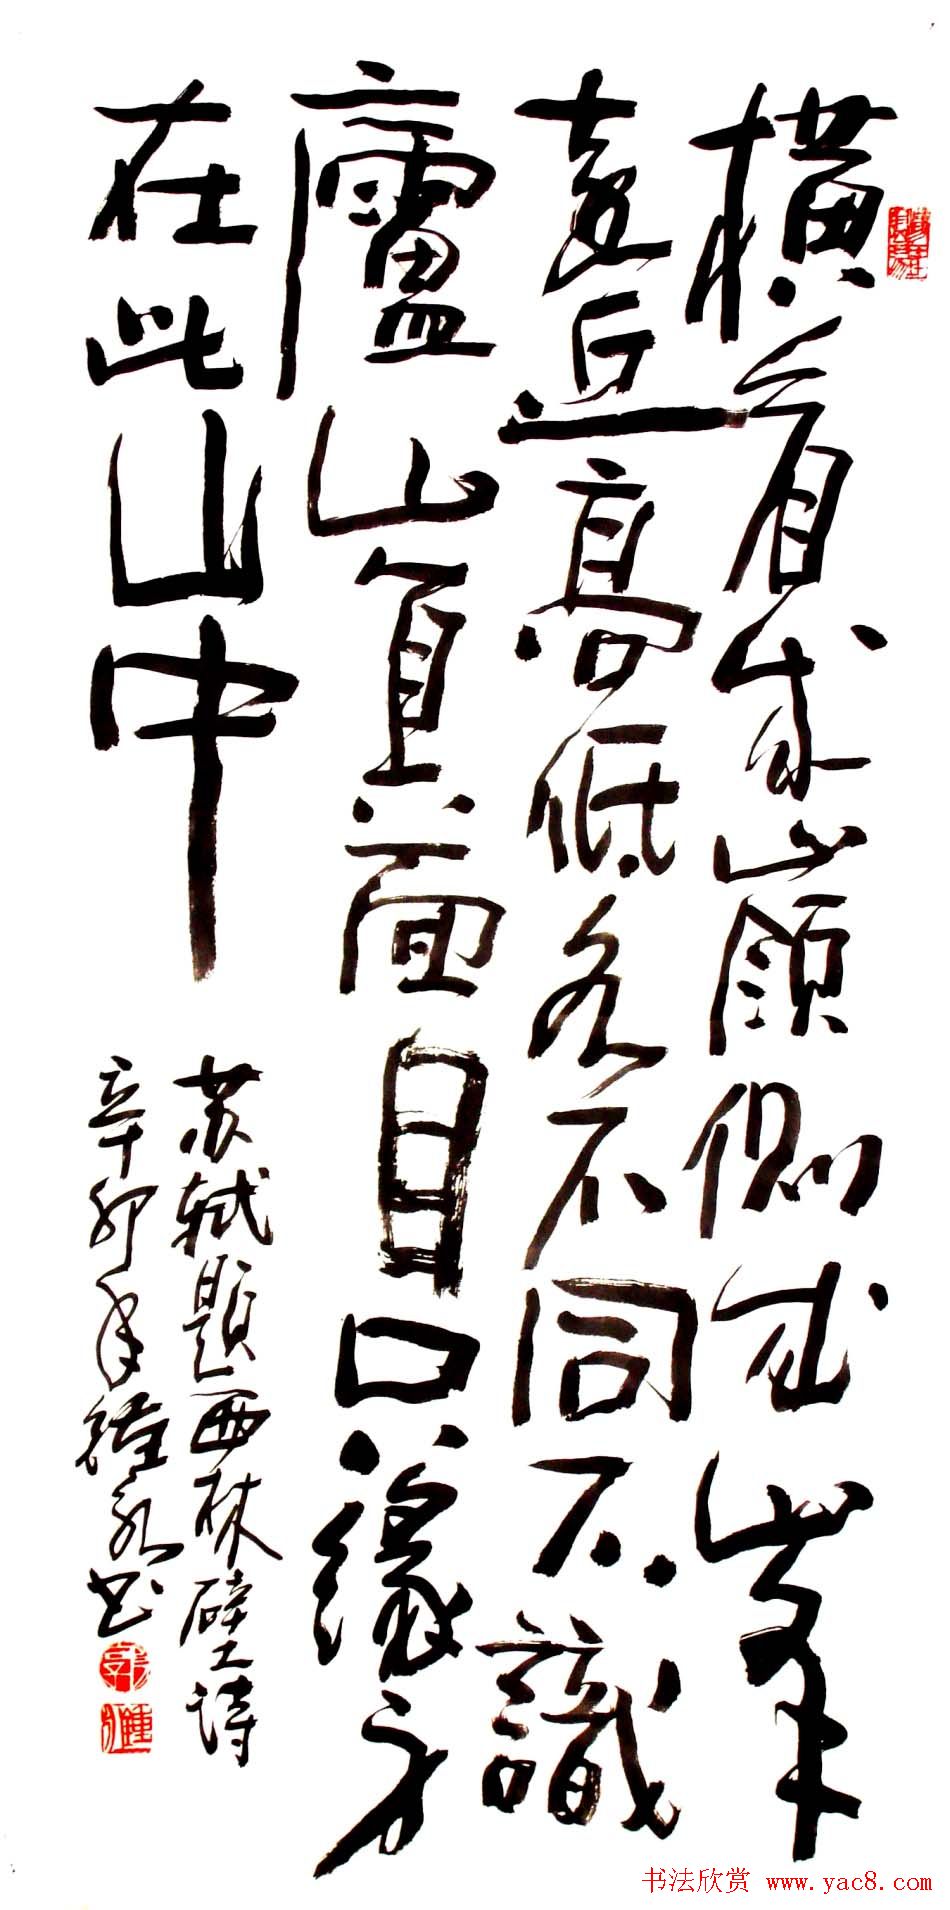 橫看成嶺側成峯
遠近高低各不同不識
廬山真面目只緣身
在此山中
苏轼题西林壁诗
辛卯年鍾永书
书法欣赏 www.yac8.com